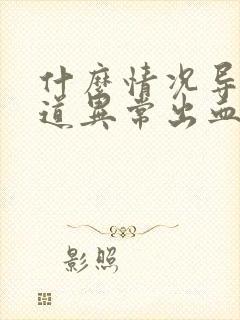 什麼情况导
道異常出血
影照